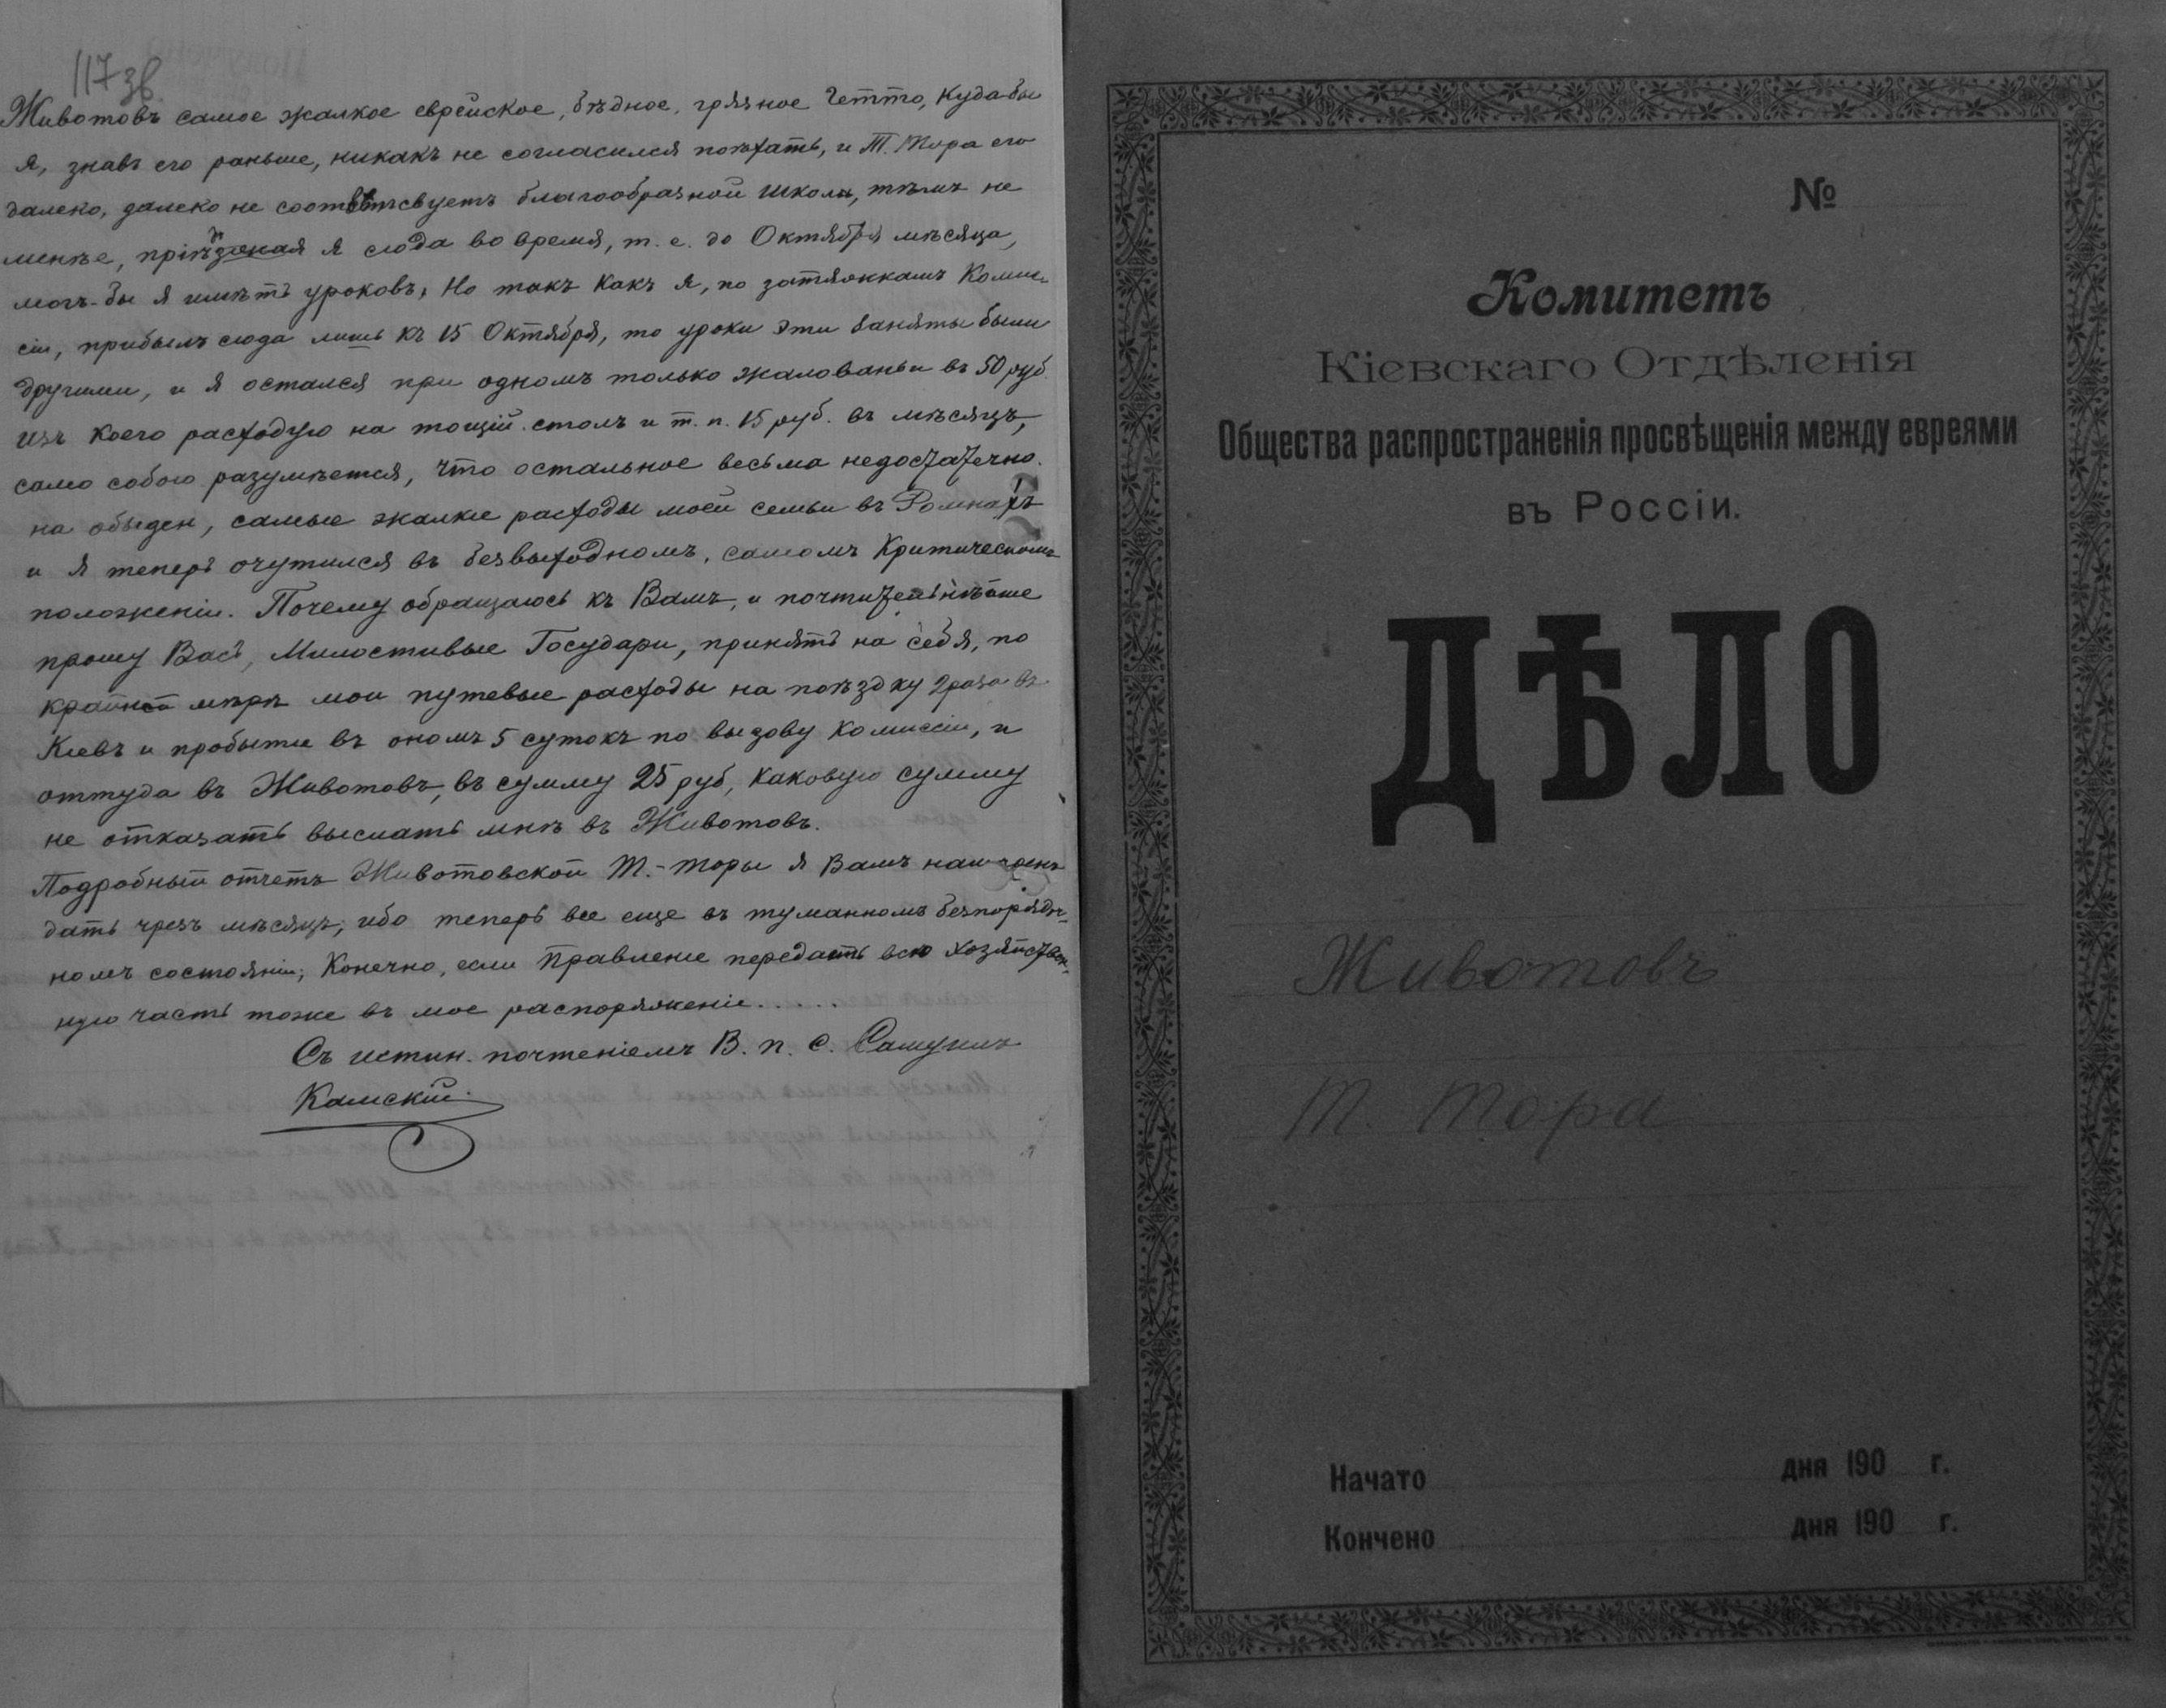 117 зв.
Животовъ самое жалкое еврейское, бѣдное, грязное Гетто, куда-бы
я, знавъ его раньше, никакъ не согласился поѣхать, и Т. Тора его
далеко, далеко не соотвѣтсвуетъ благообразной школы, тѣмъ не
менѣе, пріѣзжая я сюда во время, т. е. до Октября мѣсяца,
могъ-бы я имѣть уроковъ, Но такъ какъ я, по затяжкамъ Комис-
сіи, прибылъ сюда лишь къ 15 Октября, то уроки эти заняты были
другими, и я остался при одномъ только жалованьи въ 50 руб.
изъ коего расходую на тощій столъ и т. п. 15 руб. въ мѣсяцъ,
само собою разумѣется, что остальное весьма недостаточно
на обыден, самые жалкіе расходы моей семьи въ Ромнахъ
и я теперь очутился въ безвыходномъ, самомъ Критическомъ
положеніи. Почему обращаюсь къ Вамъ, и почтительнѣйше
прошу Васъ, Милостивые Государи, принять на себя, по
крайней мѣрѣ мои путевые расходы на поѣздку 2 раза въ
Кіевъ и пробытіе въ ономъ 5 сутокъ по вызову Комиссіи, и
оттуда въ Животовъ, въ сумму 25 руб, каковую сумму
не отказать выслать мнѣ въ Животовъ.
Подробный отчетъ Животовской Т.-Торы я Вамъ
дать чрезъ мѣсяцъ, ибо теперь все еще въ туманномъ безпоряд-
номъ состояніи, Конечно, если Правленіе передастъ всю хозяйствен-
ную часть тоже въ мое распоряженіе.....
Съ истин. почтеніемъ В. п. с. Самуилъ
Камскій.
№
Комитетъ
Кіевскаго Отдѣленія
Общества распространенія просвѣщенія между евреями
въ Россіи.
ДѢЛО
Животовъ
Т. Тора
Начато дня 190 г.
Кончено дня 190 г.